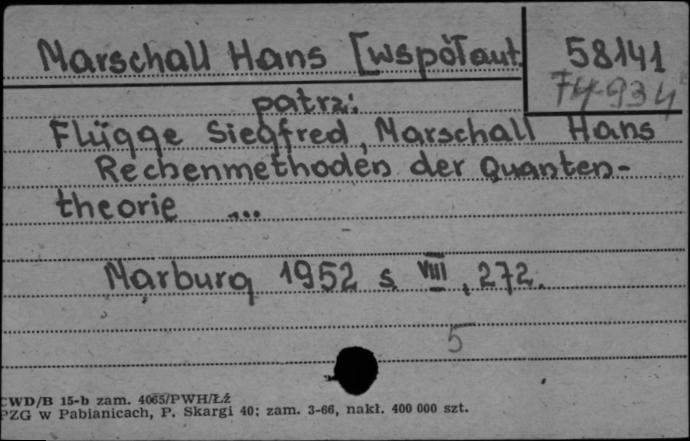 Marschall Hans [współaut.
58141
74934
patrz:
Flügge Siegfred, Marschall Hans
Rechenmethoden der Quanten-
theorie ...
Marburg 1952 s VIII, 272.
5
CWD/B 15-b zam. 4065/PWH/Łź
PZG w Pabianicach, P. Skargi 40; zam. 3-66, nakł. 400 000 szt.